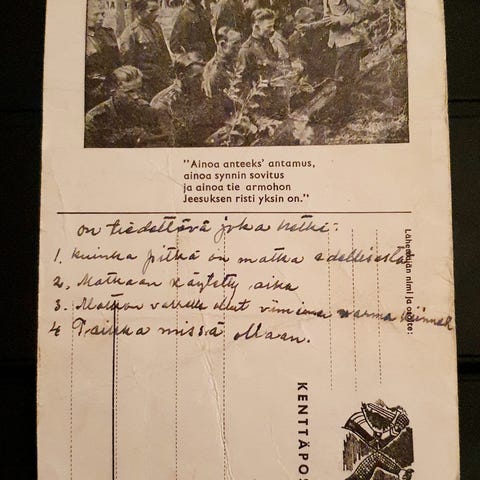 "Ainoa anteeks' antamus,
ainoa synnin sovitus
ja ainoa tie armohon
Jeesuksen risti yksin on."
on tiedettävä joka hetki:
1. Kuinka pitkä on matka edellisestä
2, Matkaan käytetty aika
3. Matkan varrella ollut viimeinen varma
4 Paikka missä ollaan.
Lähettäjän nimi ja osoite:
KENTTÄPOS